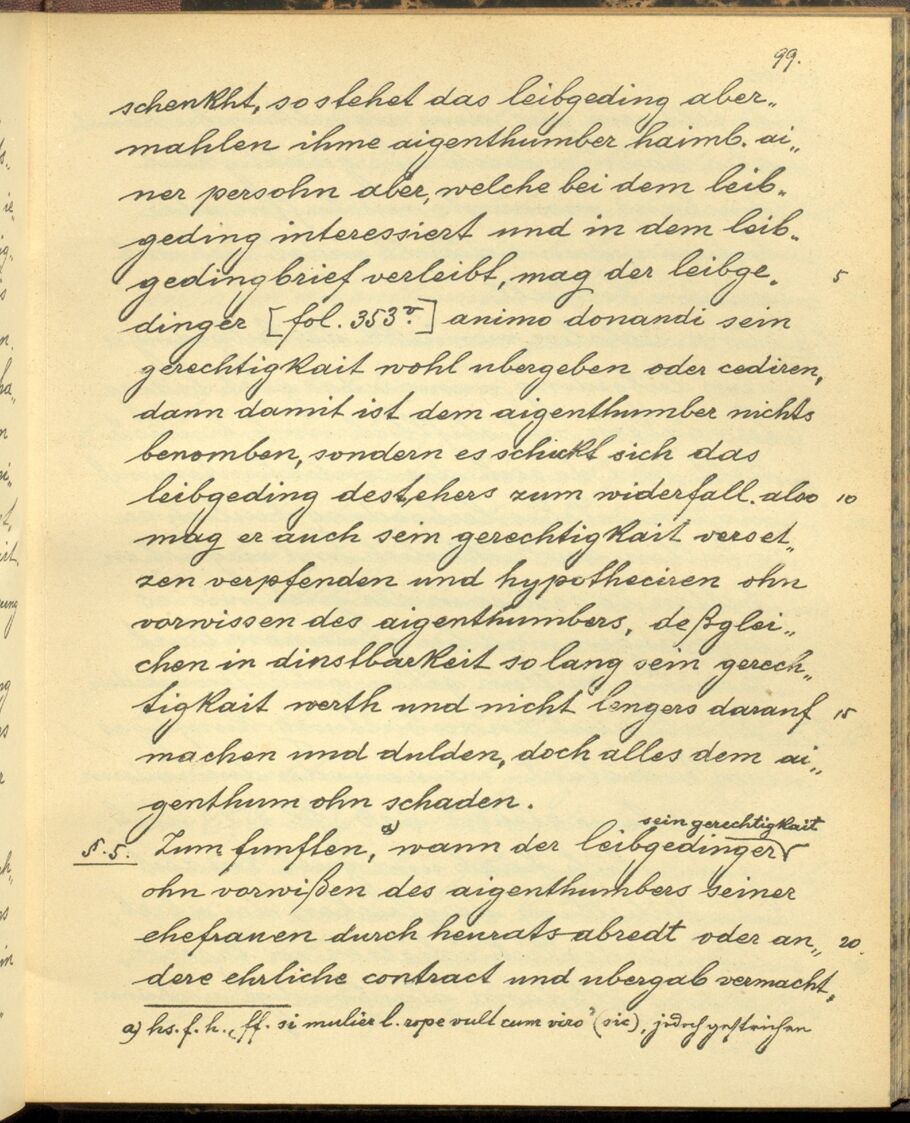 99.
schenkht, so stehet das leibgeding aber„
mahlen ihme aigenthumber haimb. ai„
ner persohn aber, welche bei dem leib„
geding interessiert und in dem leib„
gedingbrief verleibt, mag der leibge„ 5
dinger [fol. 353v.] animo donandi sein
gerechtigkait wohl ubergeben oder cediren,
dann damit ist dem aigenthumber nichts
benomben, sondern es schickt sich das
leibgeding destehers zum widerfall. also 10
mag er auch sein gerechtigkait verset„
zen verpfenden und hypotheciren ohn
vorwissen des aigenthumbers, deßglei„
chen in dinstbarkeit so lang sein gerech„
tigkait werth und nicht lengers darauf 15
machen und dulden, doch alles dem ai„
genthum ohn schaden.
sein gerechtigkait
§. 5. Zum funften, a) wann der leibgedinger
ohn vorwißen des aigenthumbers seiner
ehefrauen durch heurats abredt oder an„ 20
dere ehrliche contract und ubergab vermacht,
a) hs. f. h. „ff. si mulier l. rope vult cum viro" (sic), jedoch gestrichen